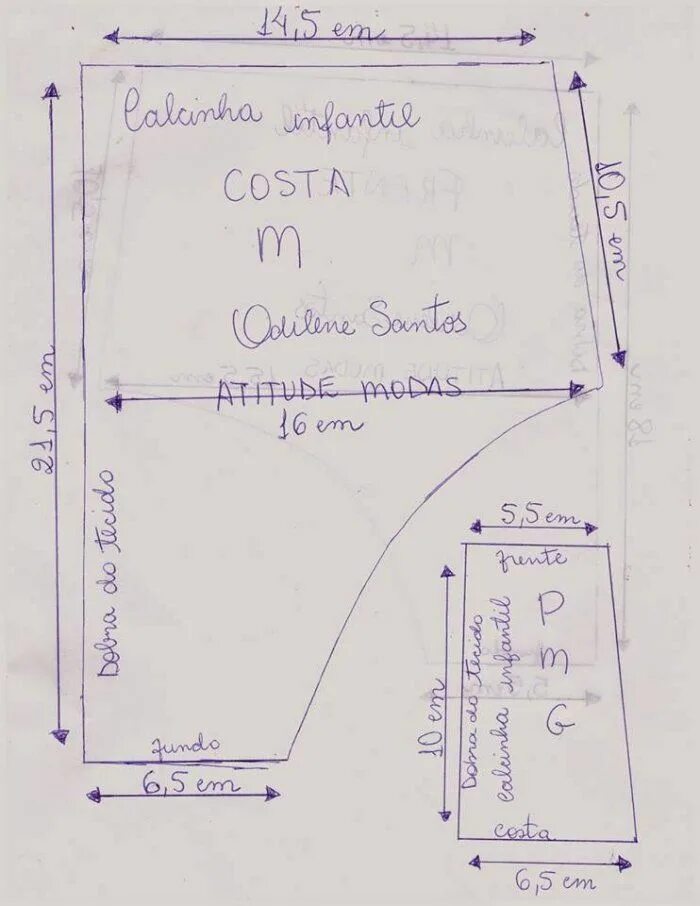 14,5 cm
Calcinha infantil
COSTA
M
Odilene Santos
ATITUDE MODAS
16 cm
10,5 cm
21,5 cm
Dobra do tecido
fundo
6,5 cm
5,5 cm
frente
P
M
G
Dobra do tecido
Calcinha infantil
10 cm
costa
6,5 cm